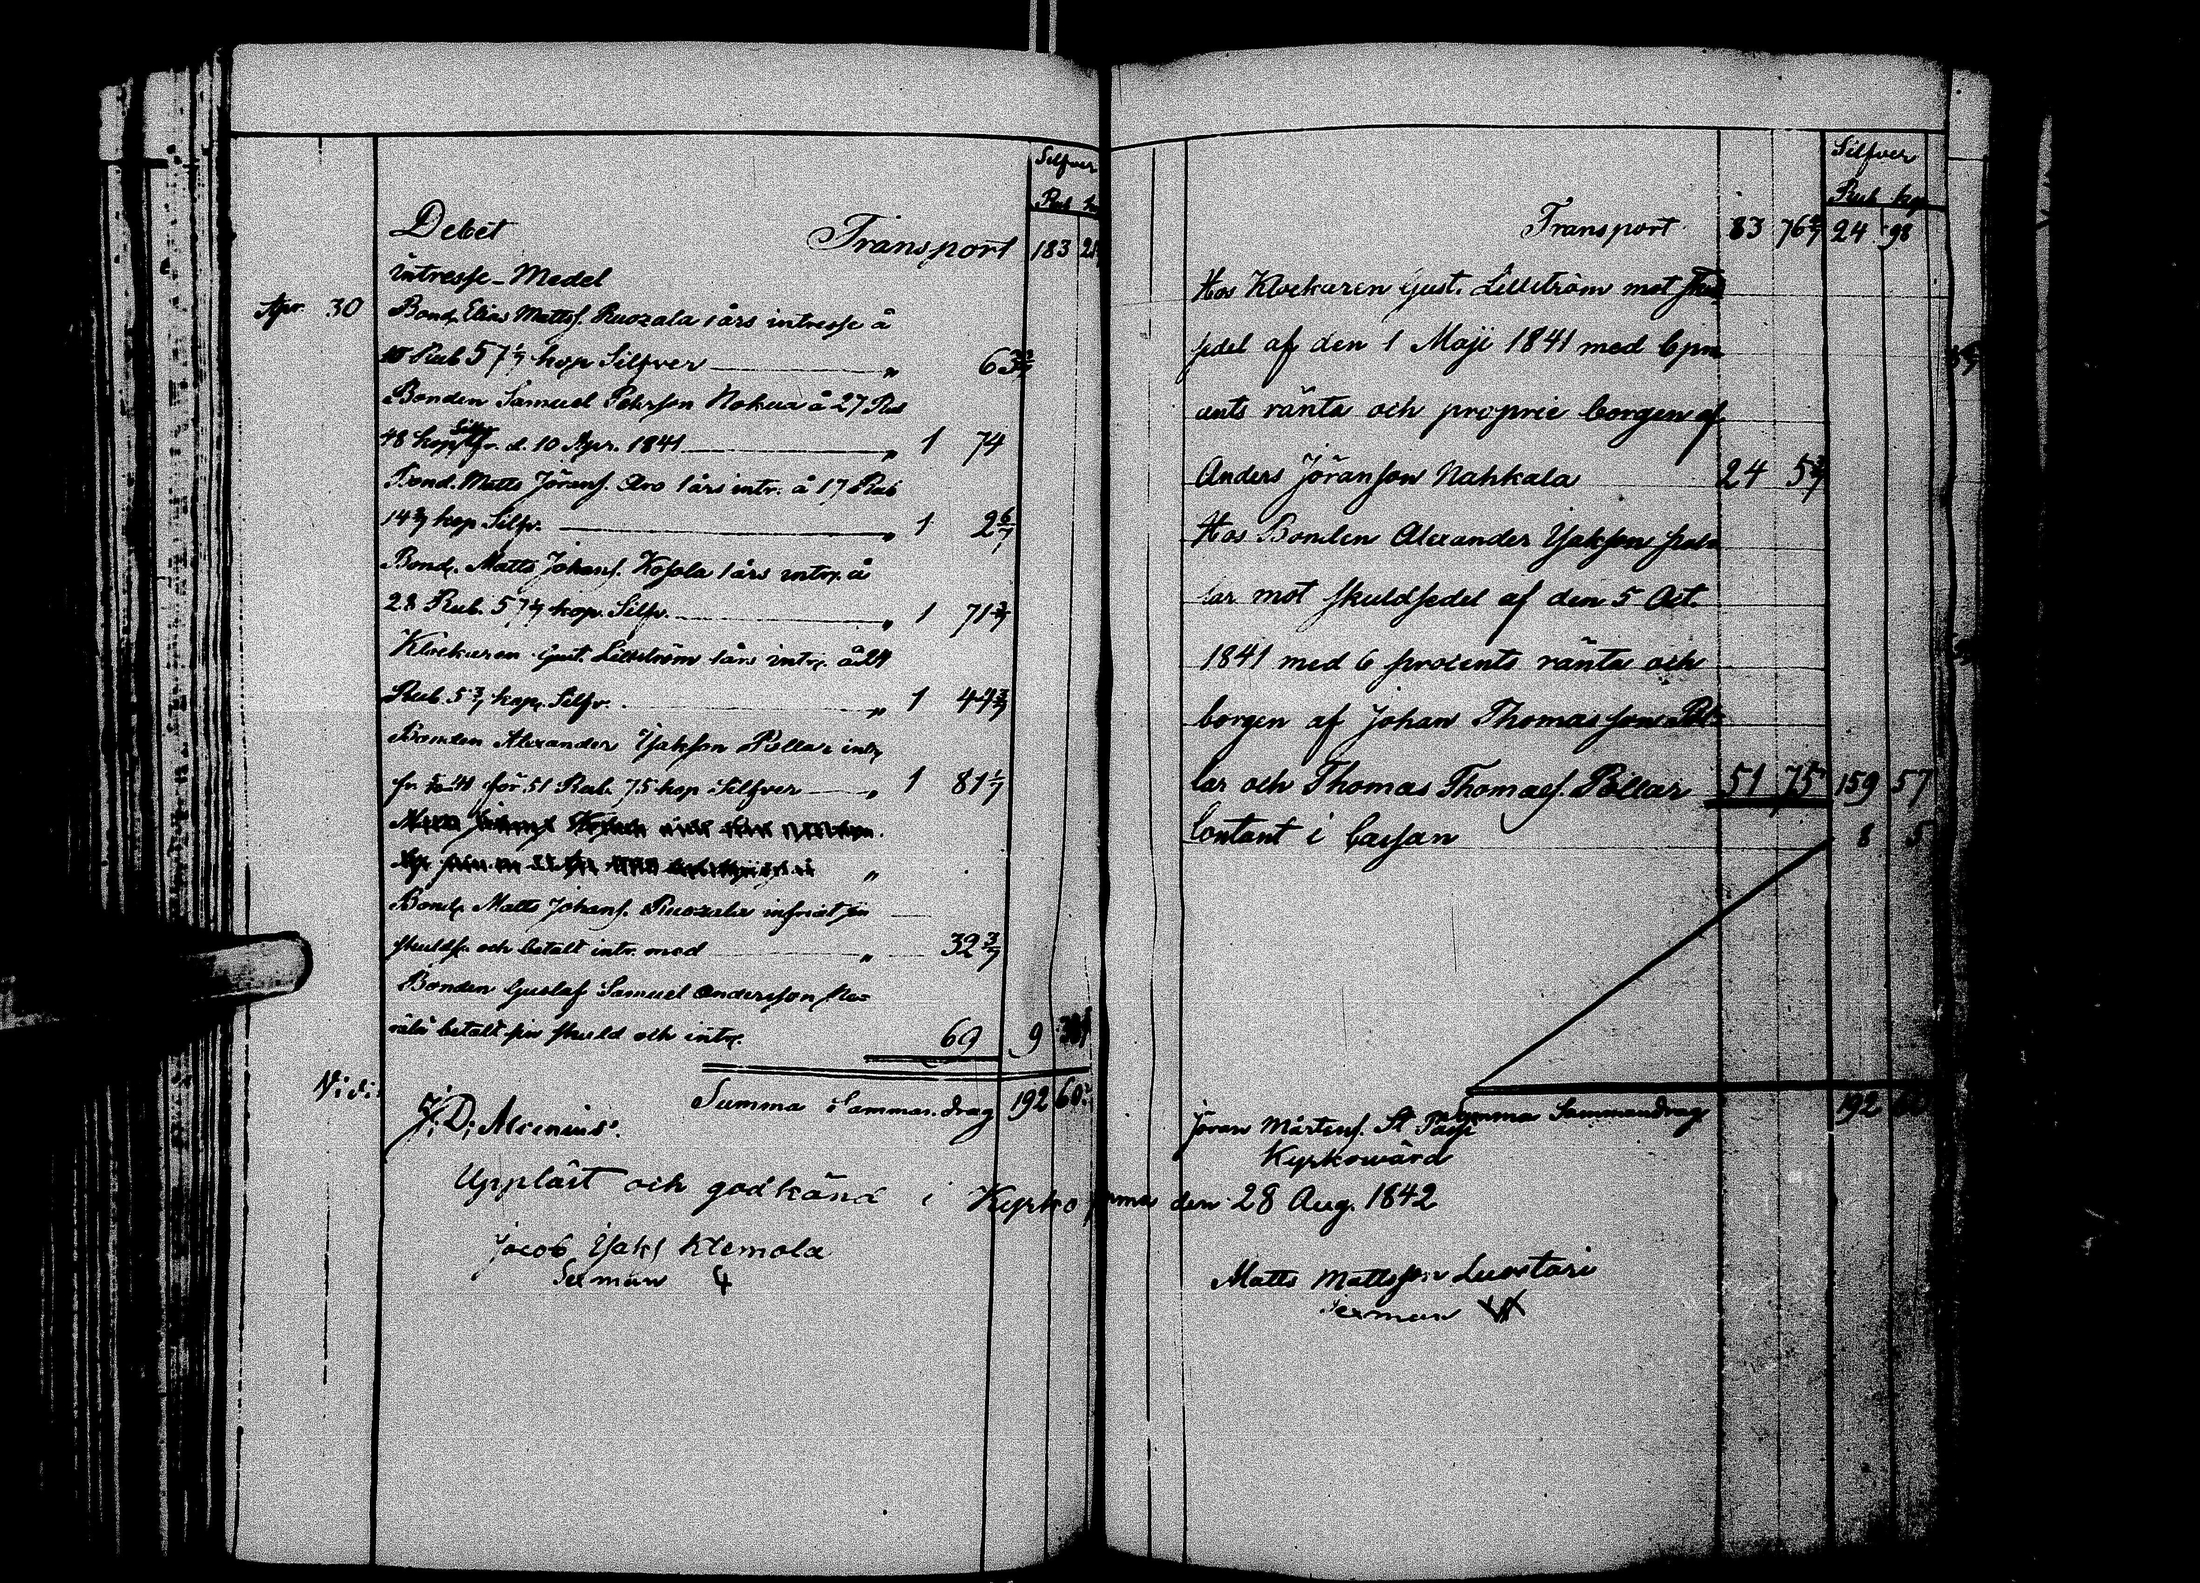 Silfver
Rub k
Debet Transport 183 21
Intresse-Medel
Apr. 30 Bond. Elias Mattss. Ruozala 1 års intresse å
10 Rub 57 1/7 kop Silfver „ 63 3/7
Bonden Samuel Pehrson Nokua å 27 Rub
48 kop Silfr fr. d. 10 Apr. 1841 „ 1 74
Bond. Matts Jörans. Aro 1 års intr. å 17 Rub
14 2/7 kop Silfr. „ 1 2 6/7
Bond. Matts Johans. Kosola 1 års intr. å
28 Rub. 57 1/7 kop. Silfr. „ 1 71 3/7
Klockaren Gust. Lillström 1 års intr. å 24
Rub 5 3/7 kop. Silfr. „ 1 44 3/7
Bonden Alexander Isakson Pollar intr.
för 51 Rub. 75 kop Silfver „ 1 81 1/7
„
Bond. Matts Johans. Ruozala infriat sin
skulds. och betalt intr. med „ 32 3/7
Bonden Gustaf Samuel Andersson
betalt sin skuld och intr. 69 9 39
Summa Sammandrag 192 60
Vidi:
J: D; Alcenius.
Uppläst och godkänd i Kyrko den 28 Aug. 1842
Jacob Isaks Klemola
Sexman 4
Silfver
Rub kop
Transport 83 76 2/7 24 98
Hos Klockaren Gust. Lillström mot skuld
sedel af den 1 Maji 1841 med 6 pro
cents ränta och proprie borgen af
Anders Jöransson Nahkala 24 5 3/7
Hos Bonden Alexander Isakson
lar mot skuldsedel af den 5 Oct.
1841 med 6 procents ränta och
borgen af Johan Thomasson Pol=
lar och Thomas Thomass. Pollar 51 75 159 57
Contant i Cassan 8 5
Summa Sammandrag 192 60
Jöran Mårtens. St Passi
Kyrkowärd
Matts Mattsson Luostari
Sexman